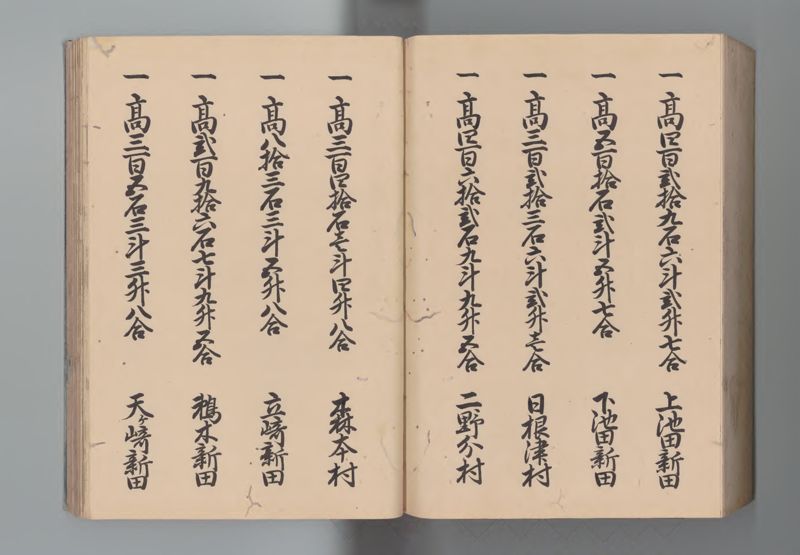 一 高四百弐拾九石六斗弐升七合 上池田新田
一 高五百拾石弐斗五升七合 下池田新田
一 高三百弐拾三石六斗弐升壱合 日根津村
一 高四百六拾弐石九斗九升五合 二野分村
一 高三百四拾石壱斗四升八合 森本村
一 高八拾三石三斗五升八合 立崎新田
一 高弐百九拾六石七斗九升五合 鵜木新田
一 高三百五石三斗三升八合 天ヶ崎新田